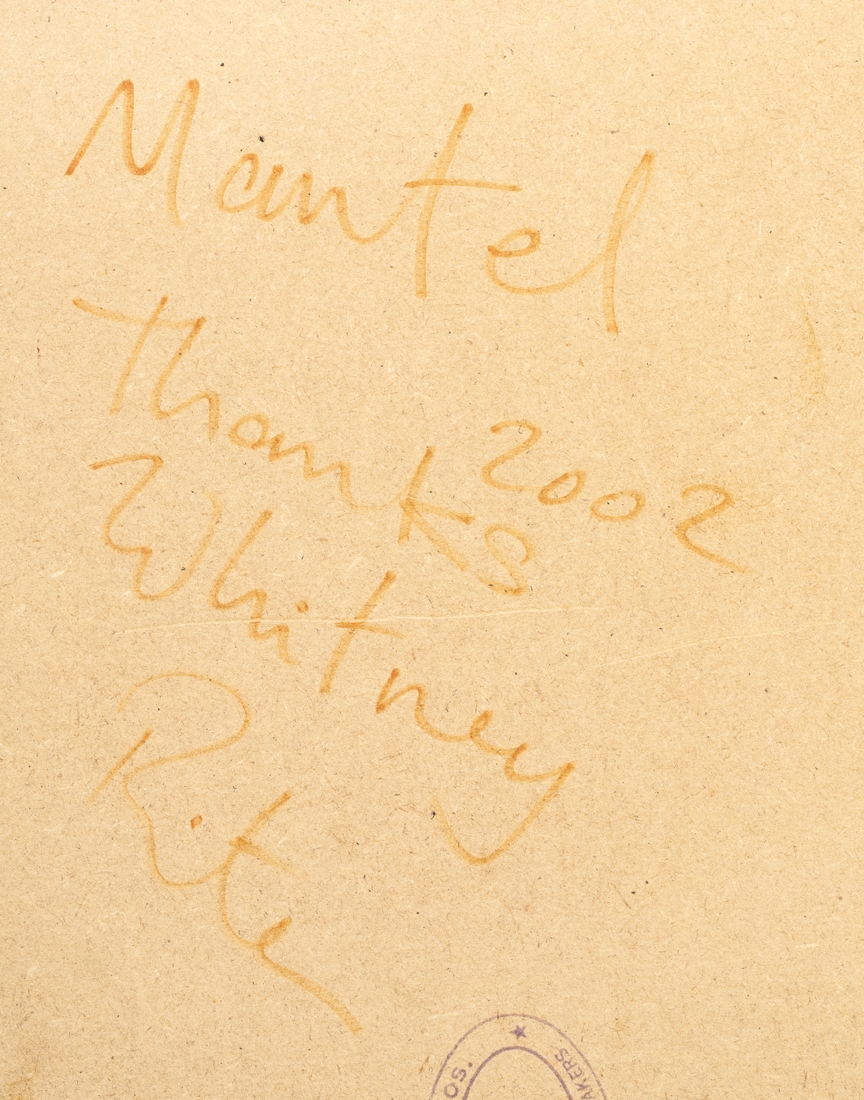 Mantel
Thanks 2002
Whitney
Rite
OS. ★ AKERS